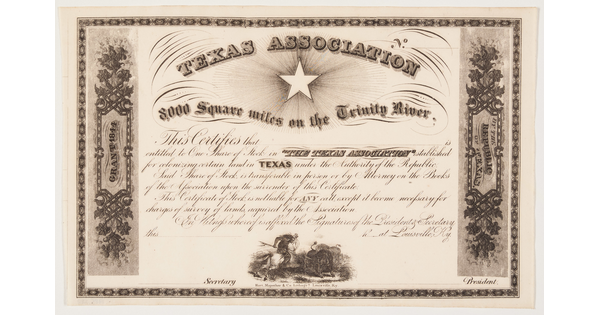 TEXAS ASSOCIATION
No.
8,000 Square miles on the Trinity River,
GRANT 1844
This Certifies that is
entitled to One Share of Stock in "THE TEXAS ASSOCIATION" established
for colonizing certain land in TEXAS under the Authority of the Republic
Said Share of Stock is transferable in person or by Attorney on the Books
of the Association upon the surrender of this Certificate.
This Certificate of Stock is not liable for ANY call except it become necessary for
charges of survey of lands acquired by the Association.
In Witness whereof is affixed the Signatures of the President & Secretary
this 18 at Louisville, Ky.
Secretary
President